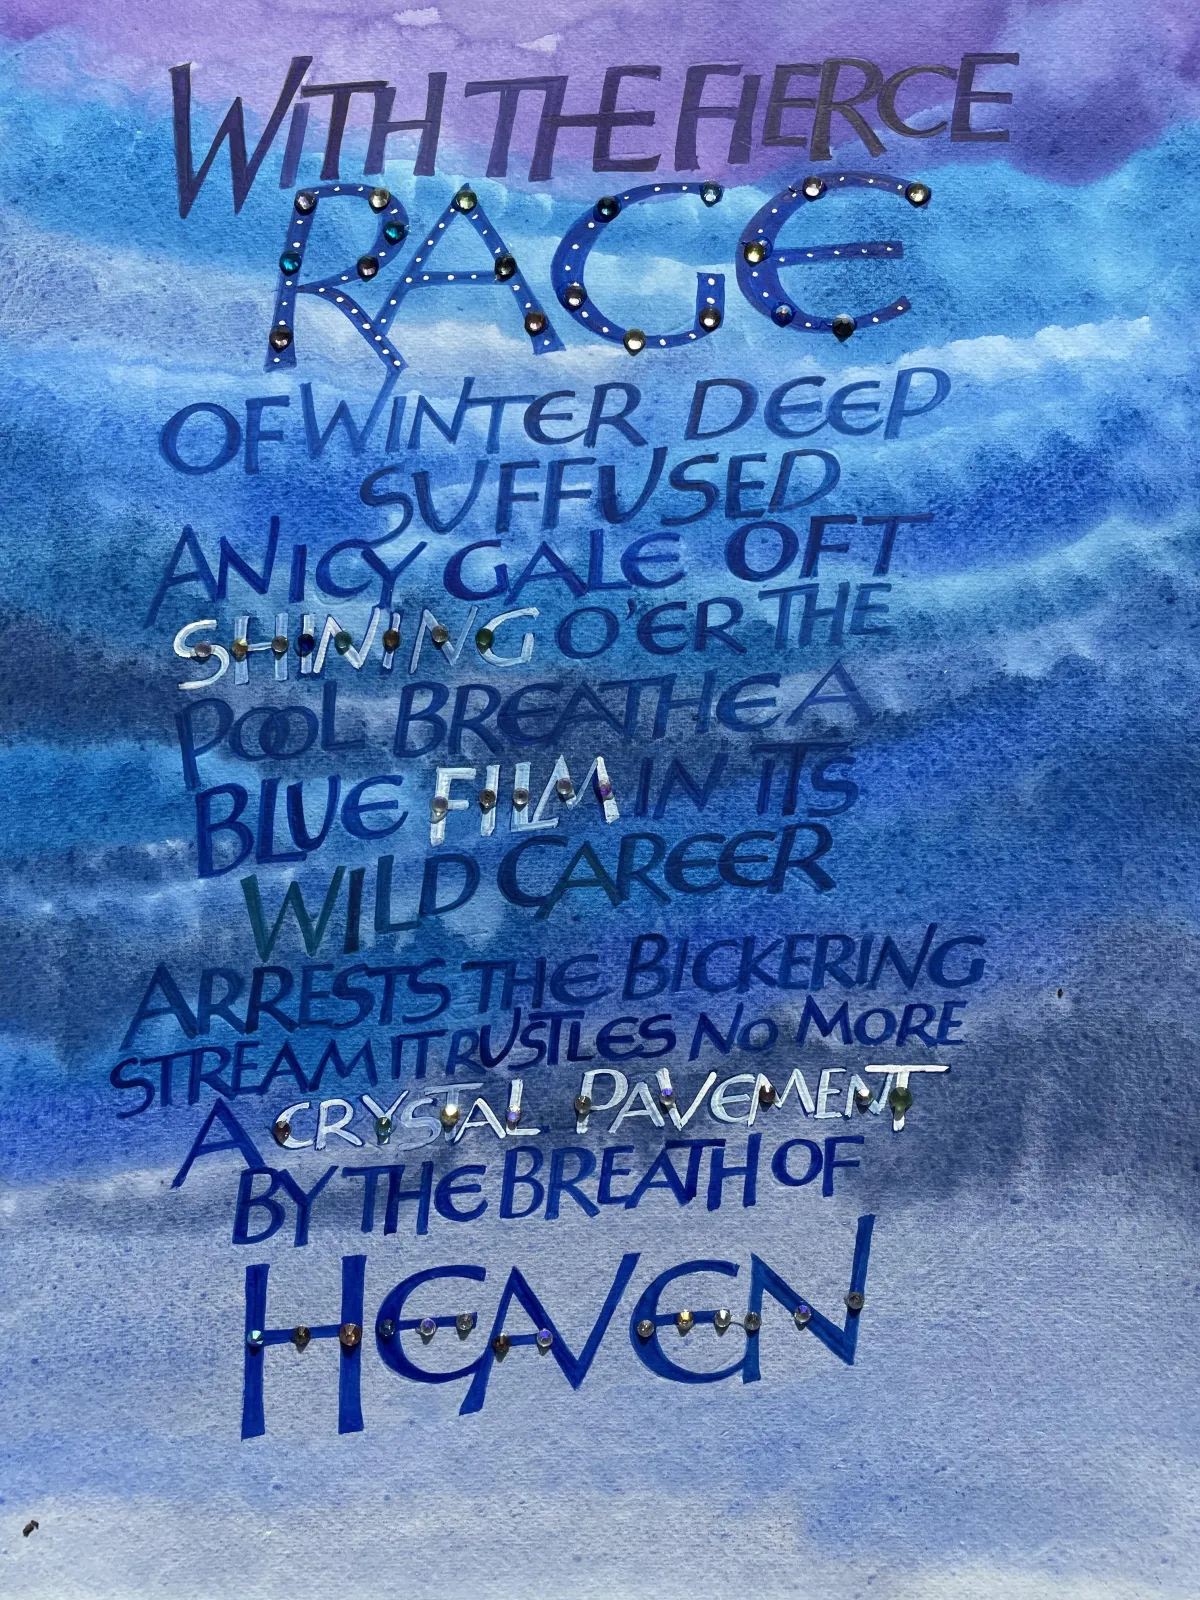 WITH THE FIERCE
RAGE
OF WINTER DEEP
SUFFUSED
AN ICY GALE OFT
SHINING O'ER THE
POOL BREATHE A
BLUE FILM IN ITS
WILD CAREER
ARRESTS THE BICKERING
STREAM IT RUSTLES NO MORE
A CRYSTAL PAVEMENT
BY THE BREATH OF
HEAVEN